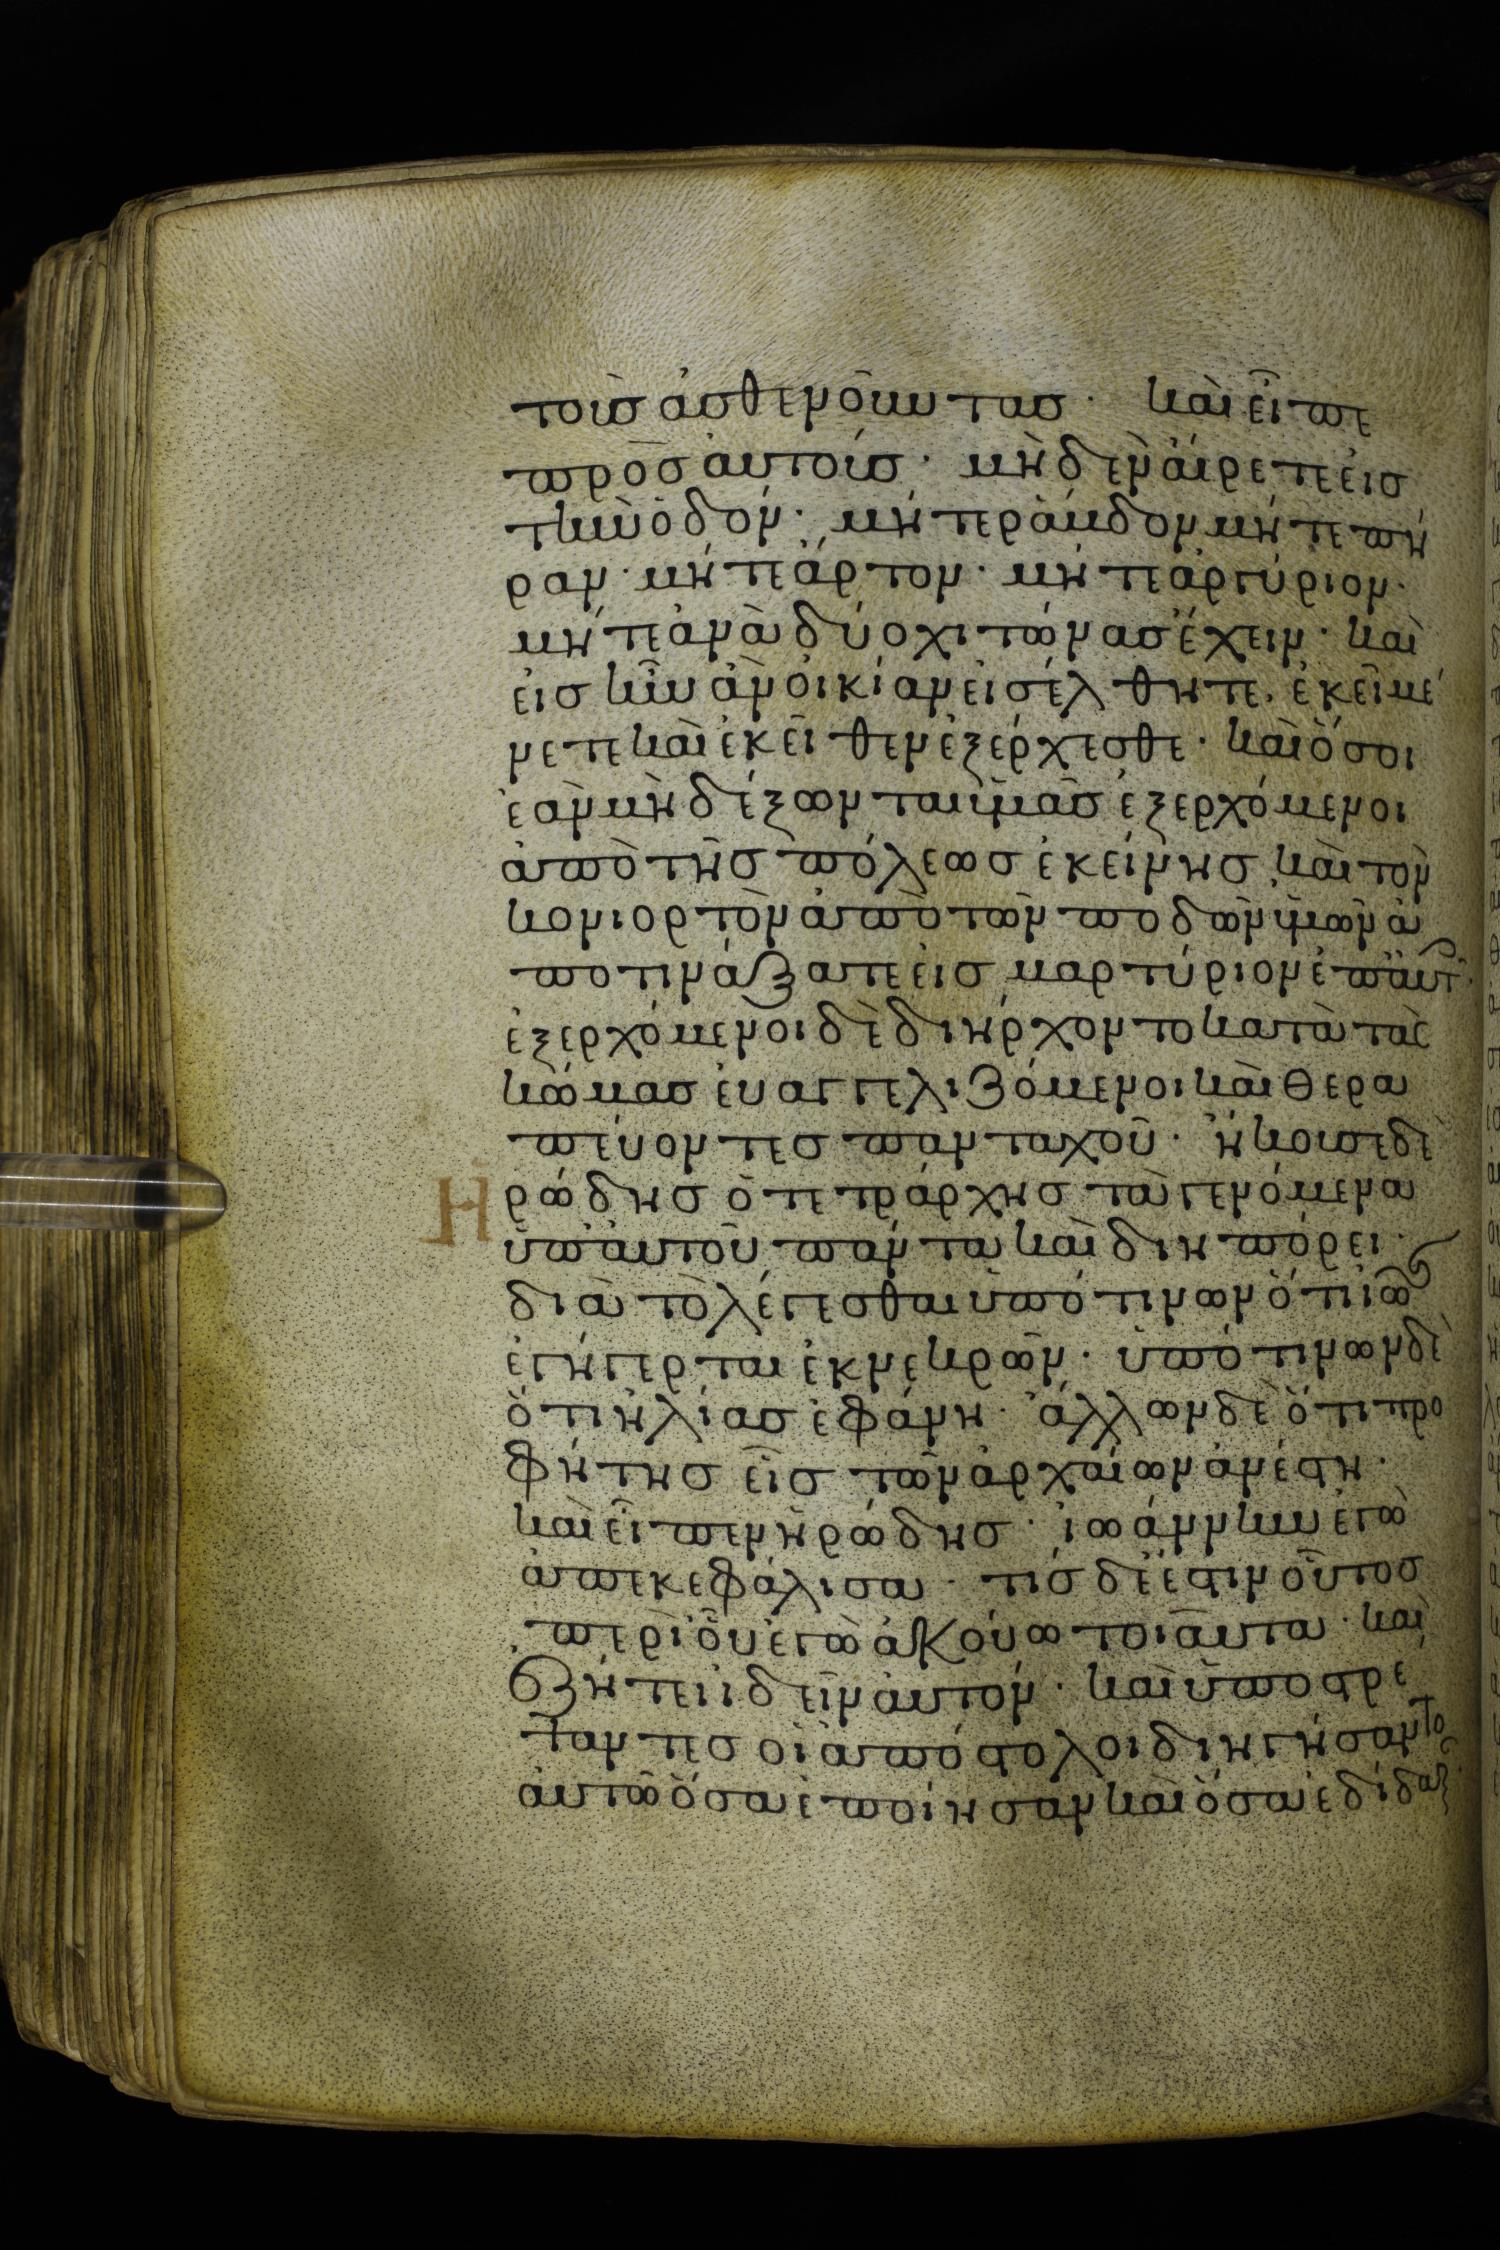 τοὺς ἀσθενοῦντας· καὶ εἶπε
πρὸς αὐτούς· μηδὲν αἴρετε εἰς
τὴν ὁδόν· μήτε ράβδον μήτε πή
ραν· μήτε ἄρτον· μήτε ἀργύριον·
μήτε ἀνὰ δύο χιτῶνας ἔχειν· καὶ
εἰς ἣν ἂν οἰκίαν εἰσέλθητε, ἐκεῖ μέ
νετε καὶ ἐκεῖθεν ἐξέρχεσθε· καὶ ὅσοι
ἐὰν μὴ δέξωνται ὑμᾶς ἐξερχόμενοι
ἀπὸ τῆς πόλεως ἐκείνης καὶ τὸν
κονιορτὸν ἀπὸ τῶν ποδῶν ὑμῶν ἀ
ποτινάξατε εἰς μαρτύριον ἐπ' αὐτούς·
ἐξερχόμενοι δὲ διήρχοντο κατὰ τὰς
κώμας εὐαγγελιζόμενοι καὶ θερα
πεύοντες πανταχοῦ· ἤκουσε δὲ
Ἡρώδης ὁ τετράρχης τὰ γενόμενα
ὑπ' αὐτοῦ πάντα καὶ διηπόρει·
διὰ τὸ λέγεσθαι ὑπό τινων ὅτι ἰω
ἐγήγερται ἐκ νεκρῶν· ὑπό τινων δὲ
ὅτι ἠλίας ἐφάνη· ἄλλων δὲ ὅτι προ
φήτης εἷς τῶν ἀρχαίων ἀνέστη·
καὶ εἶπεν ἡρώδης· ἰωάννην ἐγὼ
ἀπεκεφάλισα· τίς δέ ἐστιν οὗτος
περὶ οὗ ἐγὼ ἀκούω τοιαῦτα· καὶ
ἐζήτει ἰδεῖν αὐτόν· καὶ ὑποστρέ
ψαντες οἱ ἀπόστολοι διηγήσαντο
αὐτῷ ὅσα ἐποίησαν καὶ ὅσα ἐδίδαξαν